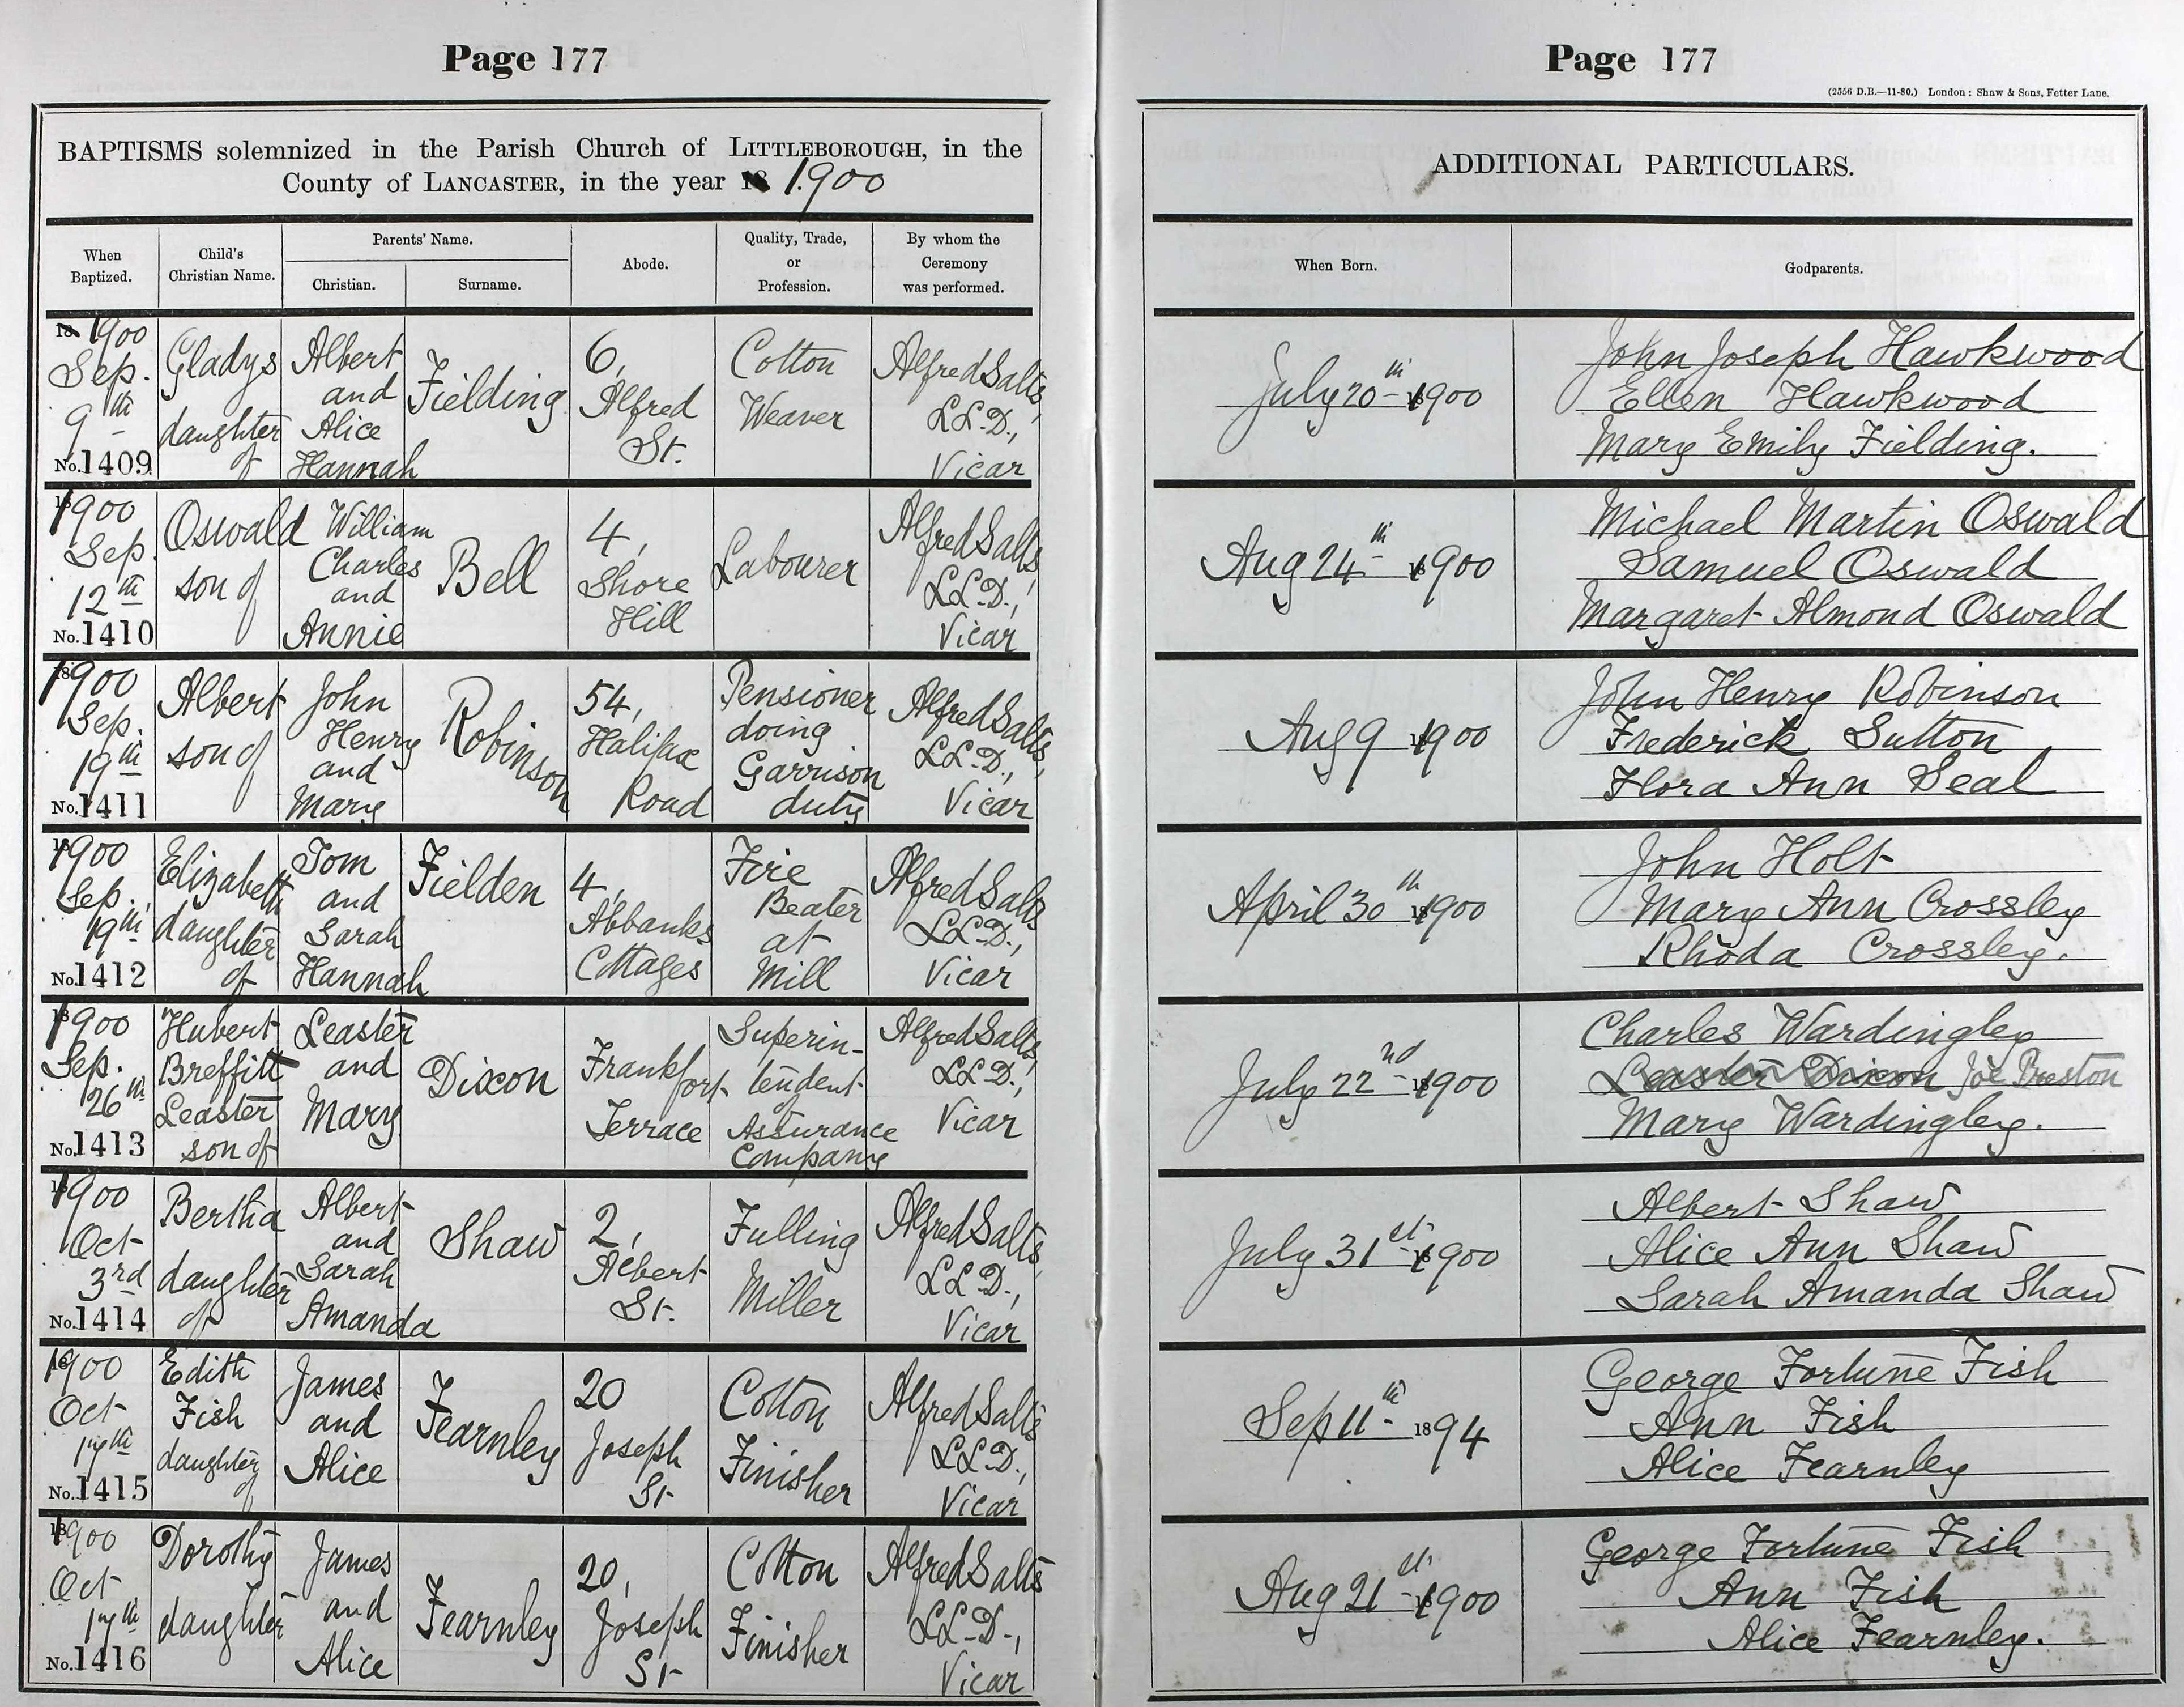 Page 177
BAPTISMS solemnized in the Parish Church of LITTLEBOROUGH, in the
County of LANCASTER, in the year 18 1900
When Baptized.
Child's Christian Name.
Parents' Name.
Christian.
Surname.
Abode.
Quality, Trade, or Profession.
By whom the Ceremony was performed.
1900
Sep.
9th
No. 1409
Gladys
daughter
of
Albert
and
Alice
Hannah
Fielding
6,
Alfred
St.
Cotton
Weaver
Alfred Salts,
LL.D.,
Vicar
1900
Sep.
12th
No. 1410
Oswald
son of
William
Charles
and
Annie
Bell
4,
Shore
Hill
Labourer
Alfred Salts,
LL.D.,
Vicar
1900
Sep.
19th
No. 1411
Albert
son of
John
Henry
and
Mary
Robinson
54,
Halifax
Road
Pensioner
doing
Garrison
duty
Alfred Salts,
LL.D.,
Vicar
1900
Sep.
19th
No. 1412
Elizabeth
daughter
of
Tom
and
Sarah
Hannah
Fielden
4,
Abbanks
Cottages
Fire
Beater
at
Mill
Alfred Salts
LL.D.,
Vicar
1900
Sep.
26th
No. 1413
Hubert
Breffitt
Leaster
son of
Leaster
and
Mary
Dixon
Frankfort
Terrace
Superin-
tendent
of
Assurance
Company
Alfred Salts,
LL.D.,
Vicar
1900
Oct
3rd
No. 1414
Bertha
daughter
of
Albert
and
Sarah
Amanda
Shaw
2,
Albert
St.
Fulling
Miller
Alfred Salts,
LL.D.,
Vicar
1900
Oct
17th
No. 1415
Edith
Fish
daughter
of
James
and
Alice
Fearnley
20
Joseph
St
Cotton
Finisher
Alfred Salts
LL.D.,
Vicar
1900
Oct
17th
No. 1416
Dorothy
daughter
James
and
Alice
Fearnley
20,
Joseph
St
Cotton
Finisher
Alfred Salts
LL.D.,
Vicar
Page 177
(2556 D.B.—11-80.) London: Shaw & Sons, Fetter Lane.
ADDITIONAL PARTICULARS.
When Born.
Godparents.
July 20th 1900
John Joseph Hawkwood
Ellen Hawkwood
Mary Emily Fielding.
Aug 24th 1900
Michael Martin Oswald
Samuel Oswald
Margaret Almond Oswald
Aug 9 1900
John Henry Robinson
Frederick Sutton
Flora Ann Seal
April 30th 1900
John Holt
Mary Ann Crossley
Rhoda Crossley.
July 22nd 1900
Charles Wardingley
Leaster Dixon Joe Preston
Mary Wardingley.
July 31st 1900
Albert Shaw
Alice Ann Shaw
Sarah Amanda Shaw
Sep 11th 1894
George Fortune Fish
Ann Fish
Alice Fearnley
Aug 21st 1900
George Fortune Fish
Ann Fish
Alice Fearnley.